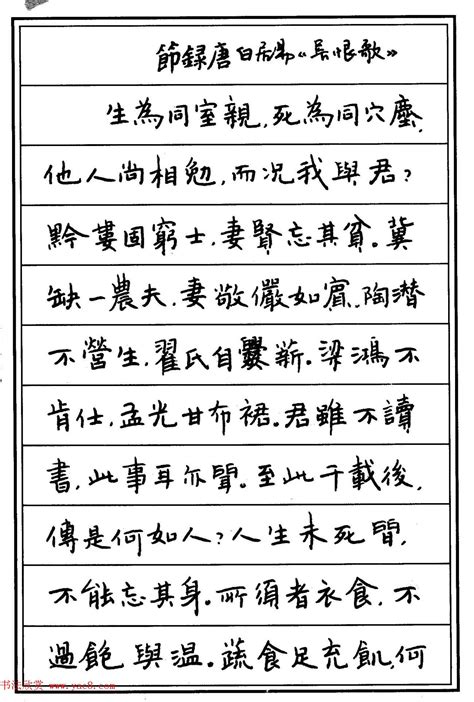 節録唐白居易《長恨歌》
生為同室親,死為同穴塵,
他人尚相勉,而况我與君?
黔婁固窮士,妻賢忘其貧。冀
缺一農夫,妻敬儼如賓,陶潜
不營生,翟氏自爨薪。梁鴻不
肯仕,孟光甘布裙。君雖不讀
書,此事耳亦聞。至此千載後,
傳是何如人?人生未死間,
不能忘其身。所須者衣食,不
過飽與温。蔬食足充飢,何
书法欣赏 www.yac8.com